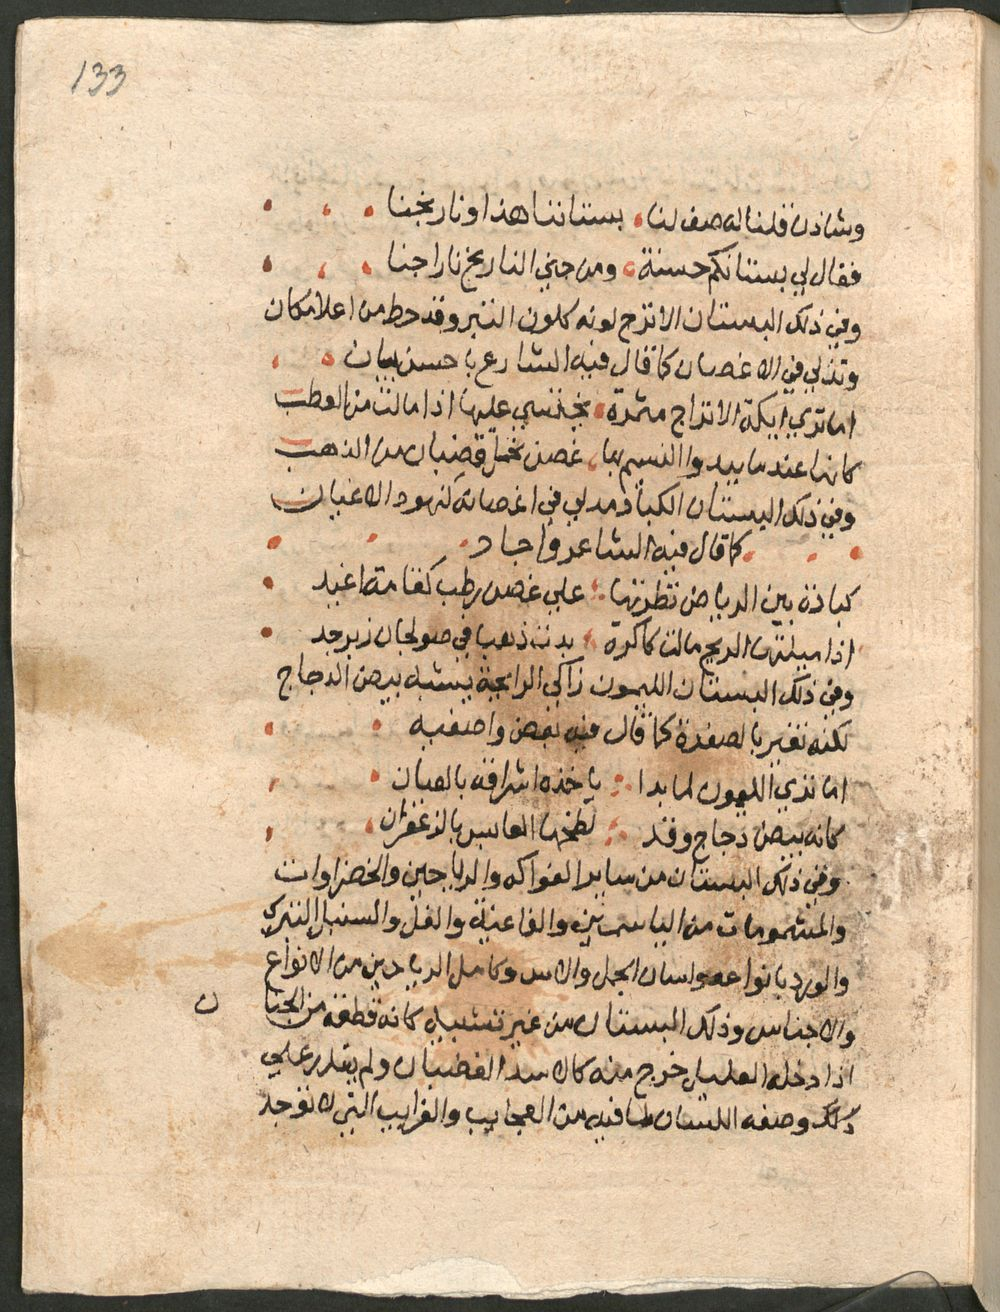 133
وشادن قلنا له صف لنا بستاننا هذا ونارنجنا
فقال لي بستانكم حسنة ومن جني النارنج نارا جنا
وفي ذلك البستان الاترج لونه كلون التبر وقد حط من اعلا مكان
وتدلي في الاغصان كما قال فيه الشارع باحسن بيان
اما تري ايكة الاتراج مثمرة نخشي عليها اذا مالت من العطب
كانها عندما يبدوا النسيم بها غصن تحمل قضبان من الذهب
وفي ذلك البستان الكباد مدلي في اغصانه كنهود الاغيان
كما قال فيه الشاعر واجاد
كبادة بين الرياض نظرتها علي غصن رطب كقامة اغيد
اذا ميلتها الريح مالت كاكرة بدت ذهبا في صولجان زبرجد
وفي ذلك البستان الليمون زاكي الرايحة يشبه بيض الدجاج
لكنه تغير بالصفرة كما قال فيه بعض واصفيه
اما تري الليمون لما بدا ياخذه اشراقه بالعيان
كانه بيض دجاج وقد لطخها العابس بالزعفران
وفي ذلك البستان من ساير الفواكه والرياحين والخضراوات
والمشمومات من الياسمين والفاغية والفل والسنبل التبري
والورد بانواعه ولسان الجمل والاس وكامل الرياحين من الانواع
والاجناس وذلك البستان من غير تشبيه كانه قطعة من الجنا
ن
اذا دخله العليل خرج منه كالاسد الغضبان ولم يقدر علي
ذلك وصفه اللسان لما فيه من العجايب والغرايب التي لا توجد